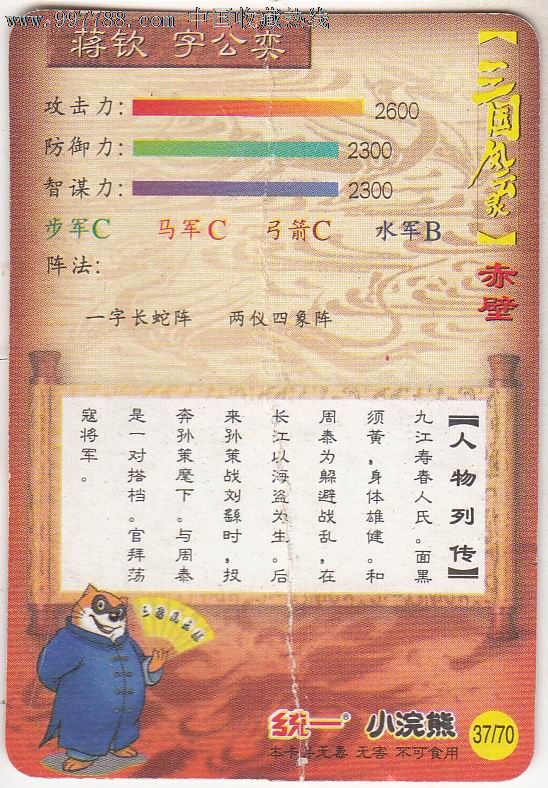 www.997788.com 中国收藏热线
蒋钦 字公奕
【三国风云录】
赤壁
攻击力: 2600
防御力: 2300
智谋力: 2300
步军C 马军C 弓箭C 水军B
阵法:
一字长蛇阵 两仪四象阵
【人物列传】
九江寿春人氏。面黑
须黄,身体雄健。和
周泰为躲避战乱,在
长江以海盗为生。后
来孙策战刘繇时,投
奔孙策麾下。与周泰
是一对搭档。官拜荡
寇将军。
三国风云录
统一® 小浣熊
本卡片无毒 无害 不可食用
37/70